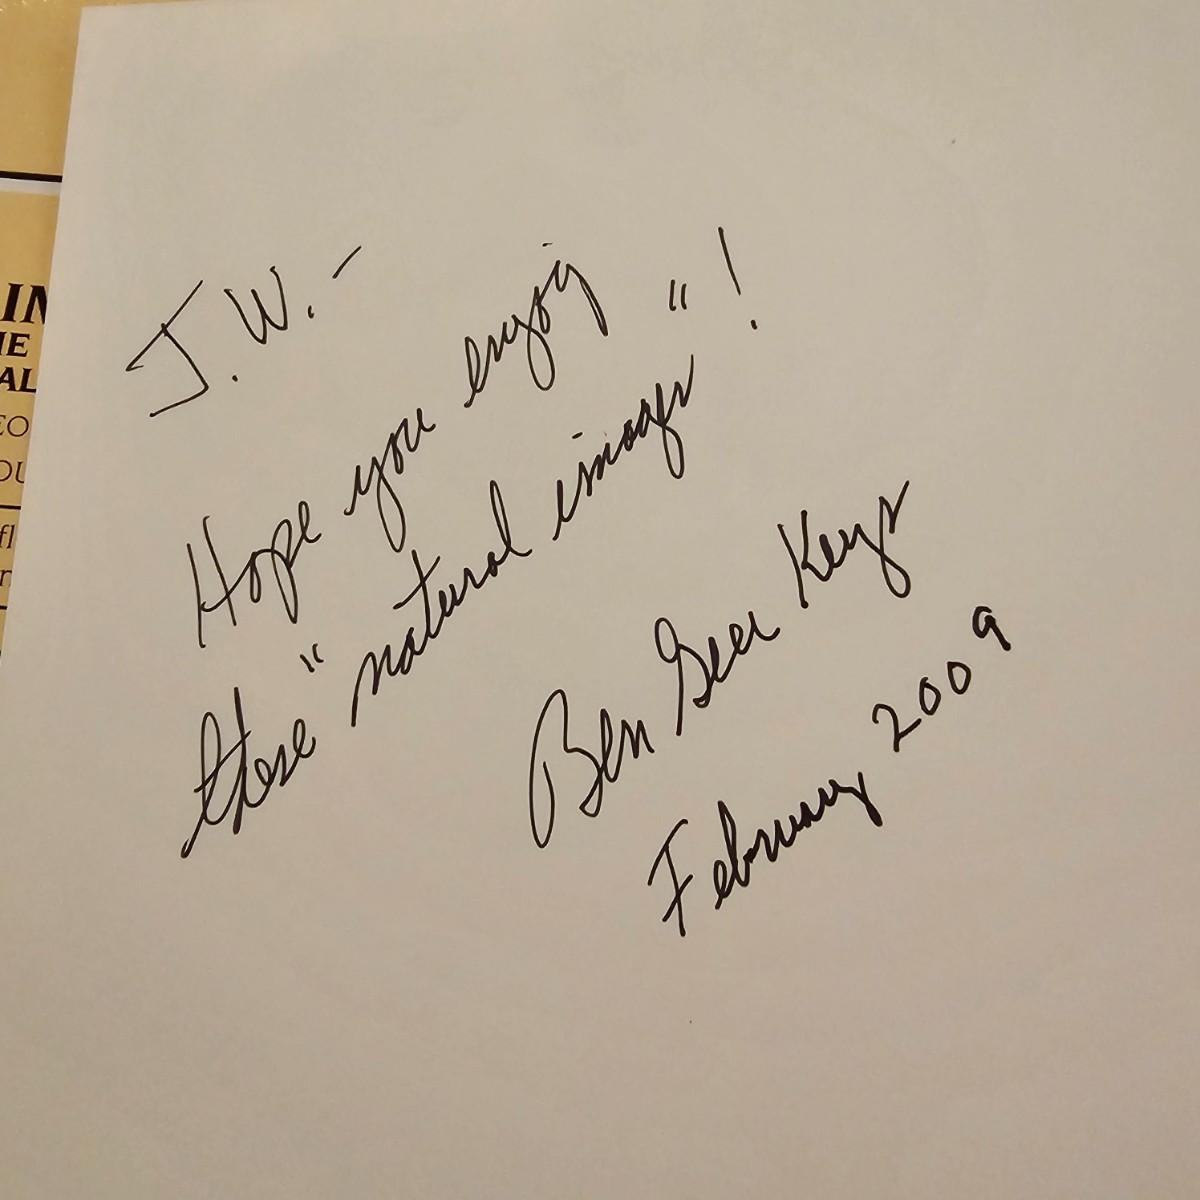 J.W. –
Hope you enjoy
these "natural images"!
Ben Geer Keys
February 2009
IN
HE
AL
EO
OU
fl